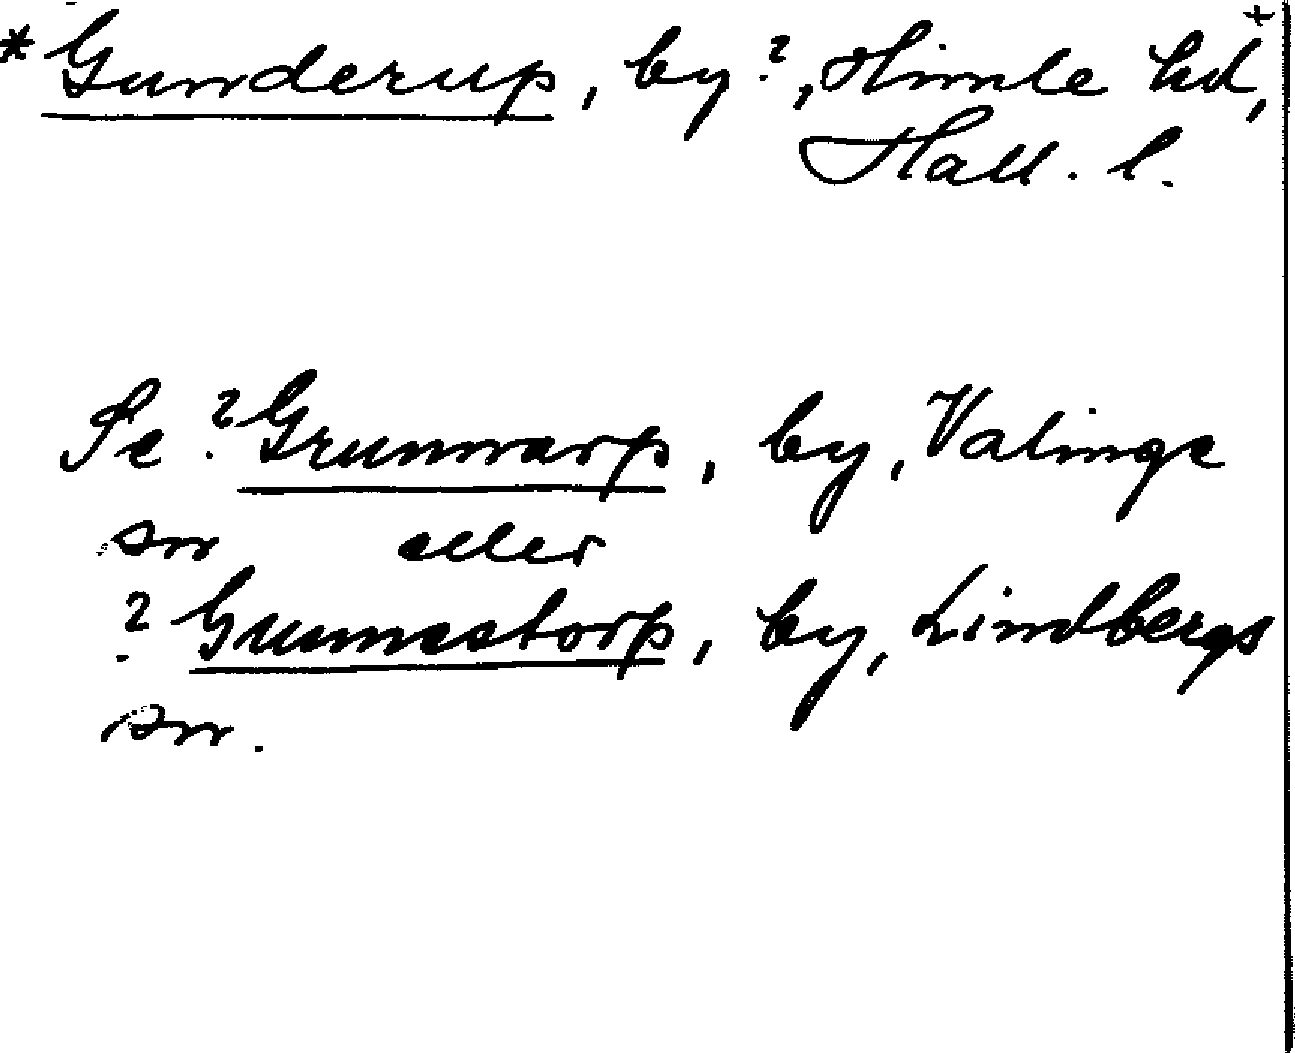 * Gunderup, by?, Himle hd, +
Hall. l.
Se ? Grunnarp, by, Valinge
sn eller
? Gunnestorp, by, Lindbergs
sn.